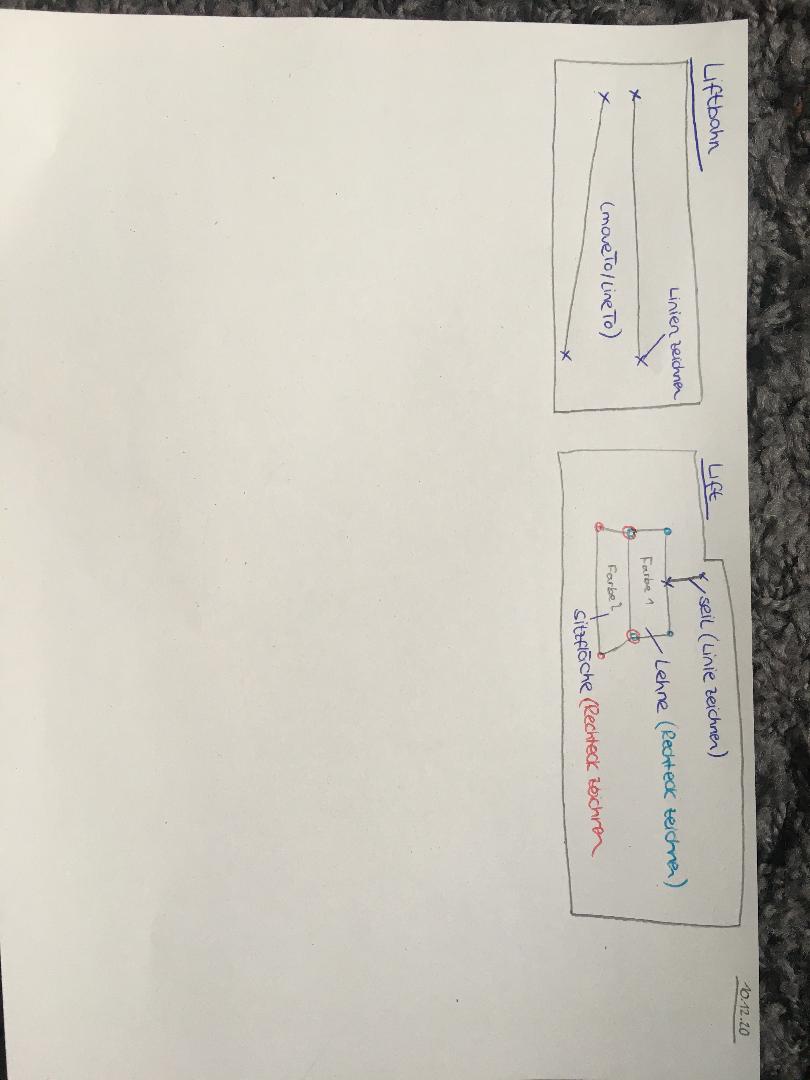 10.12.20
Liftbahn
Linien zeichnen
(moveTo/LineTo)
Lift
seil (Linie zeichnen)
Lehne (Rechteck zeichnen)
Farbe 1
Farbe 2
Sitzfläche (Rechteck zeichnen